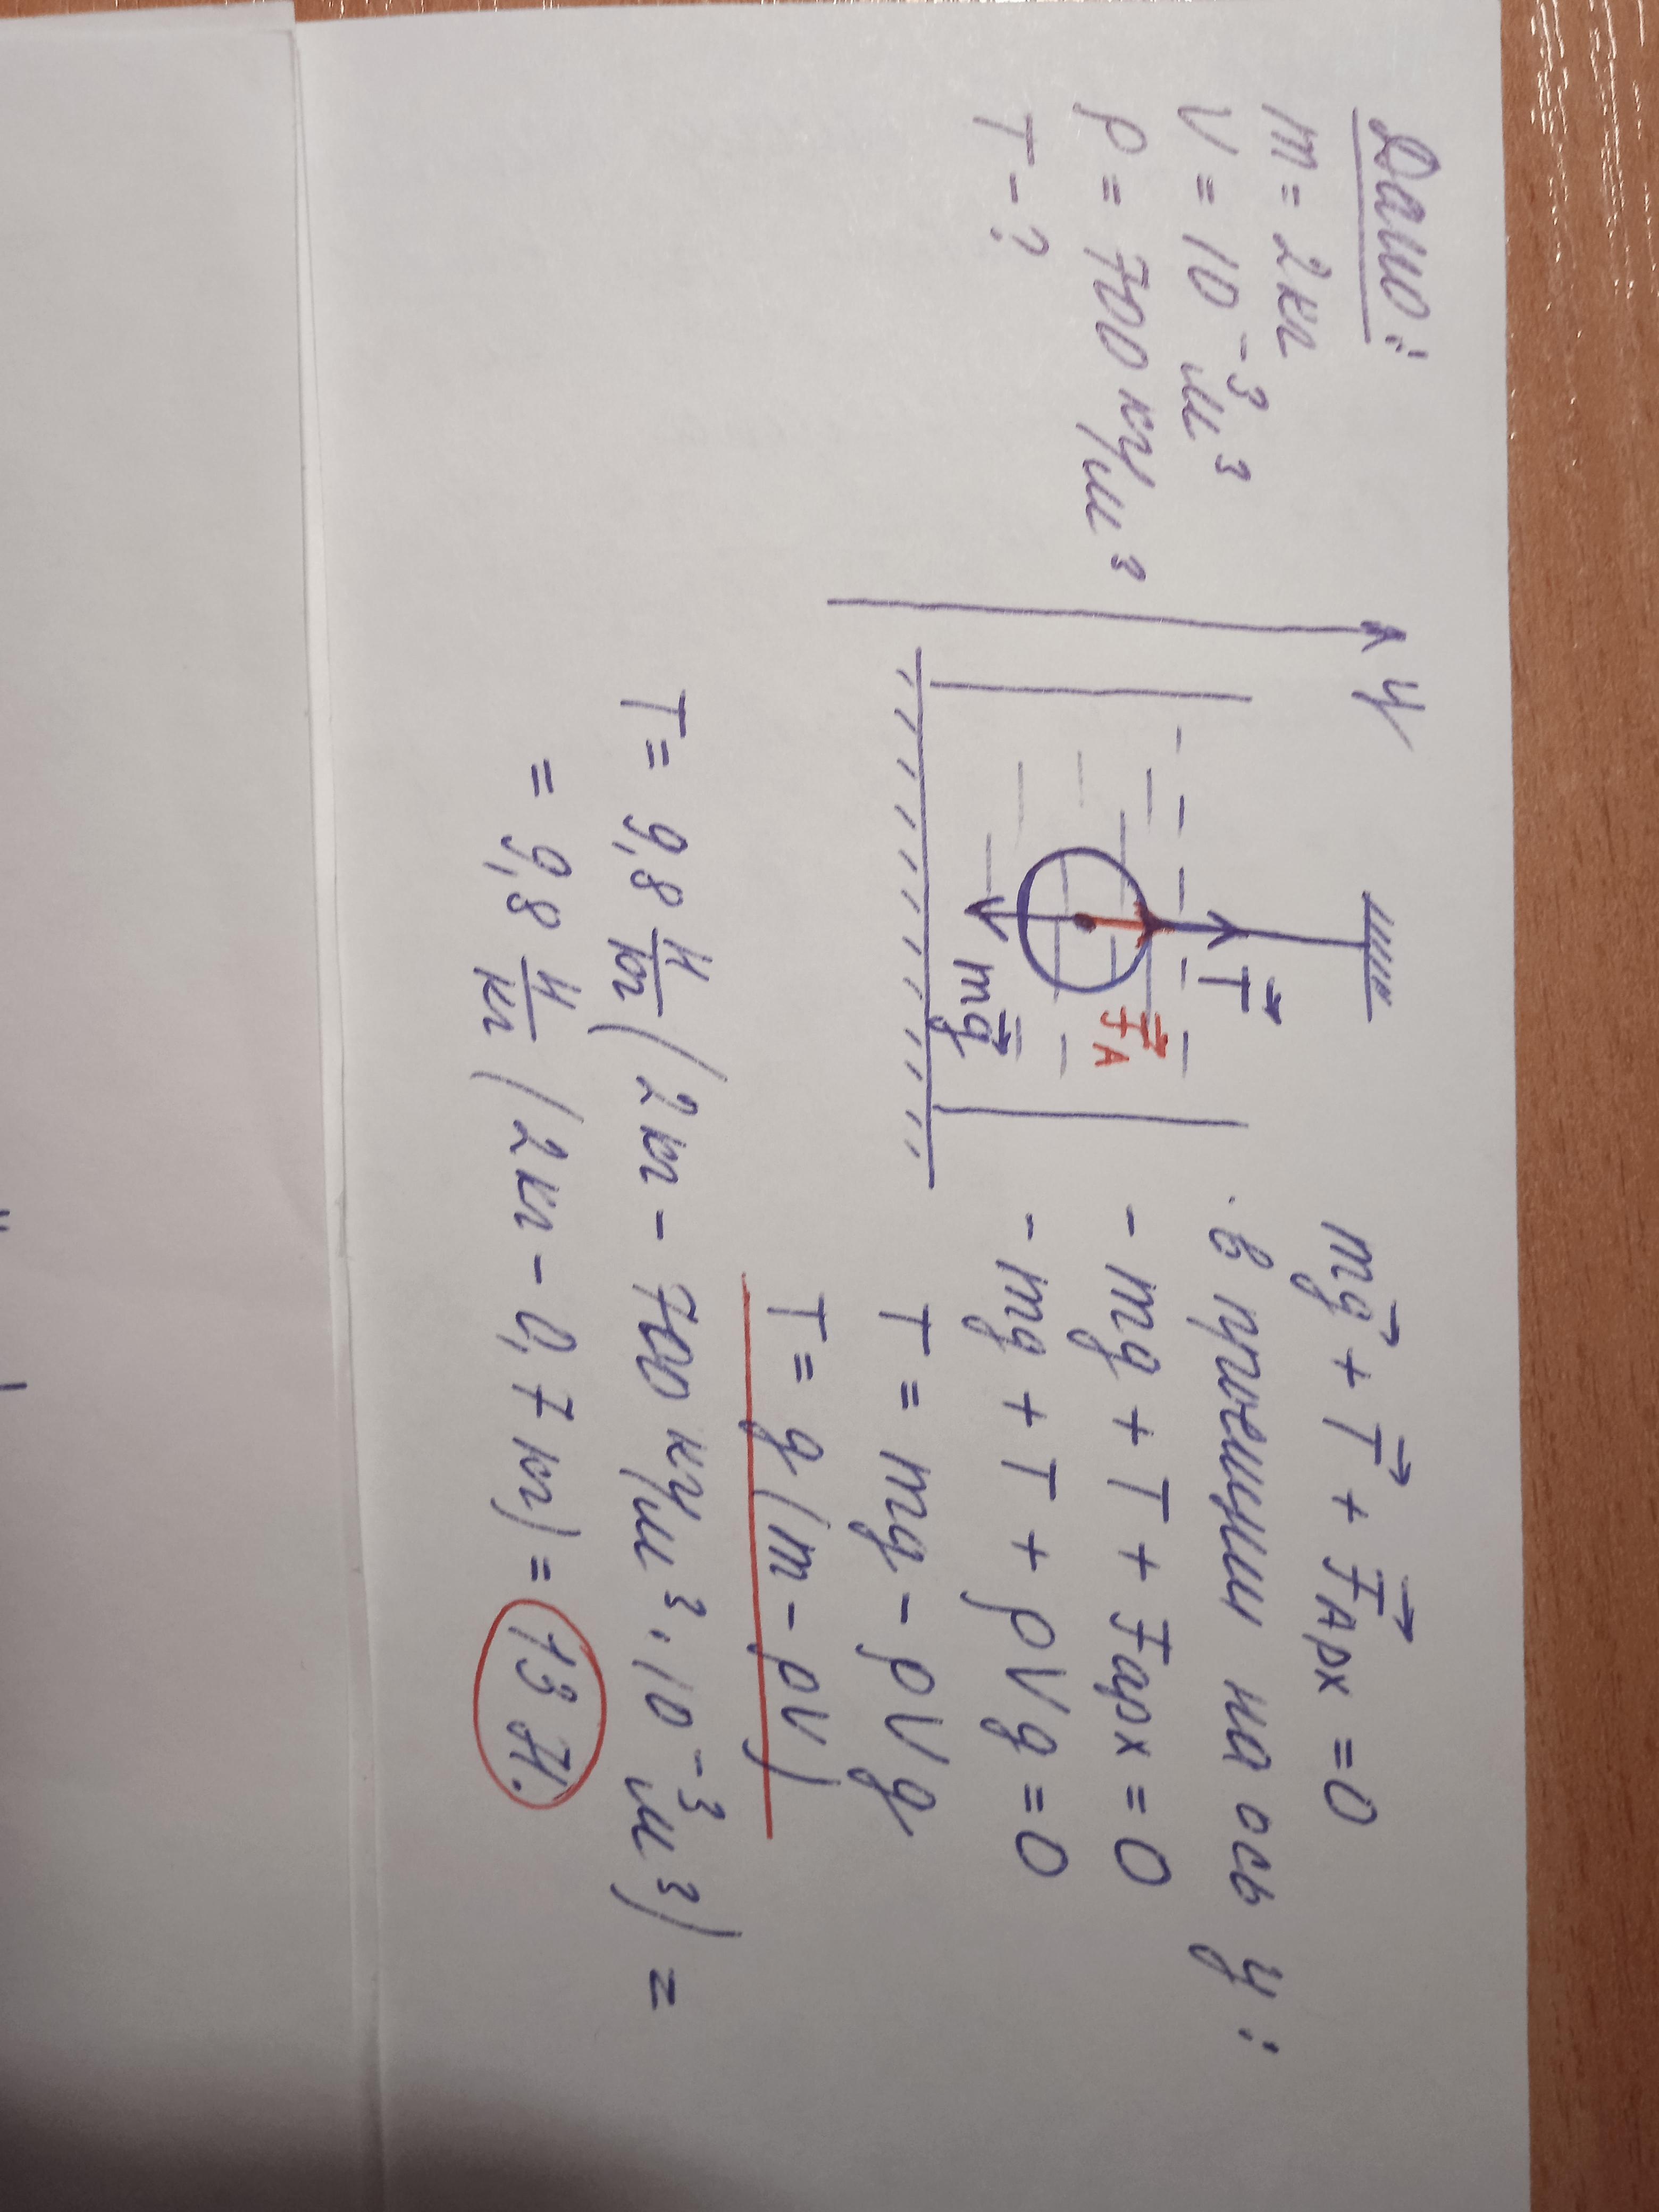 Дано:
m = 2 кг
V = 10⁻³ м³
ρ = 700 кг/м³
T - ?
y
T⃗
F⃗A
mg⃗
mg⃗ + T⃗ + F⃗Арх = 0
в проекции на ось y:
- mg + T + Fарх = 0
- mg + T + ρVg = 0
T = mg - ρVg
T = g(m - ρV)
T = 9,8 Н/кг (2 кг - 700 кг/м³ · 10⁻³ м³) =
= 9,8 Н/кг (2 кг - 0,7 кг) = 13 Н.